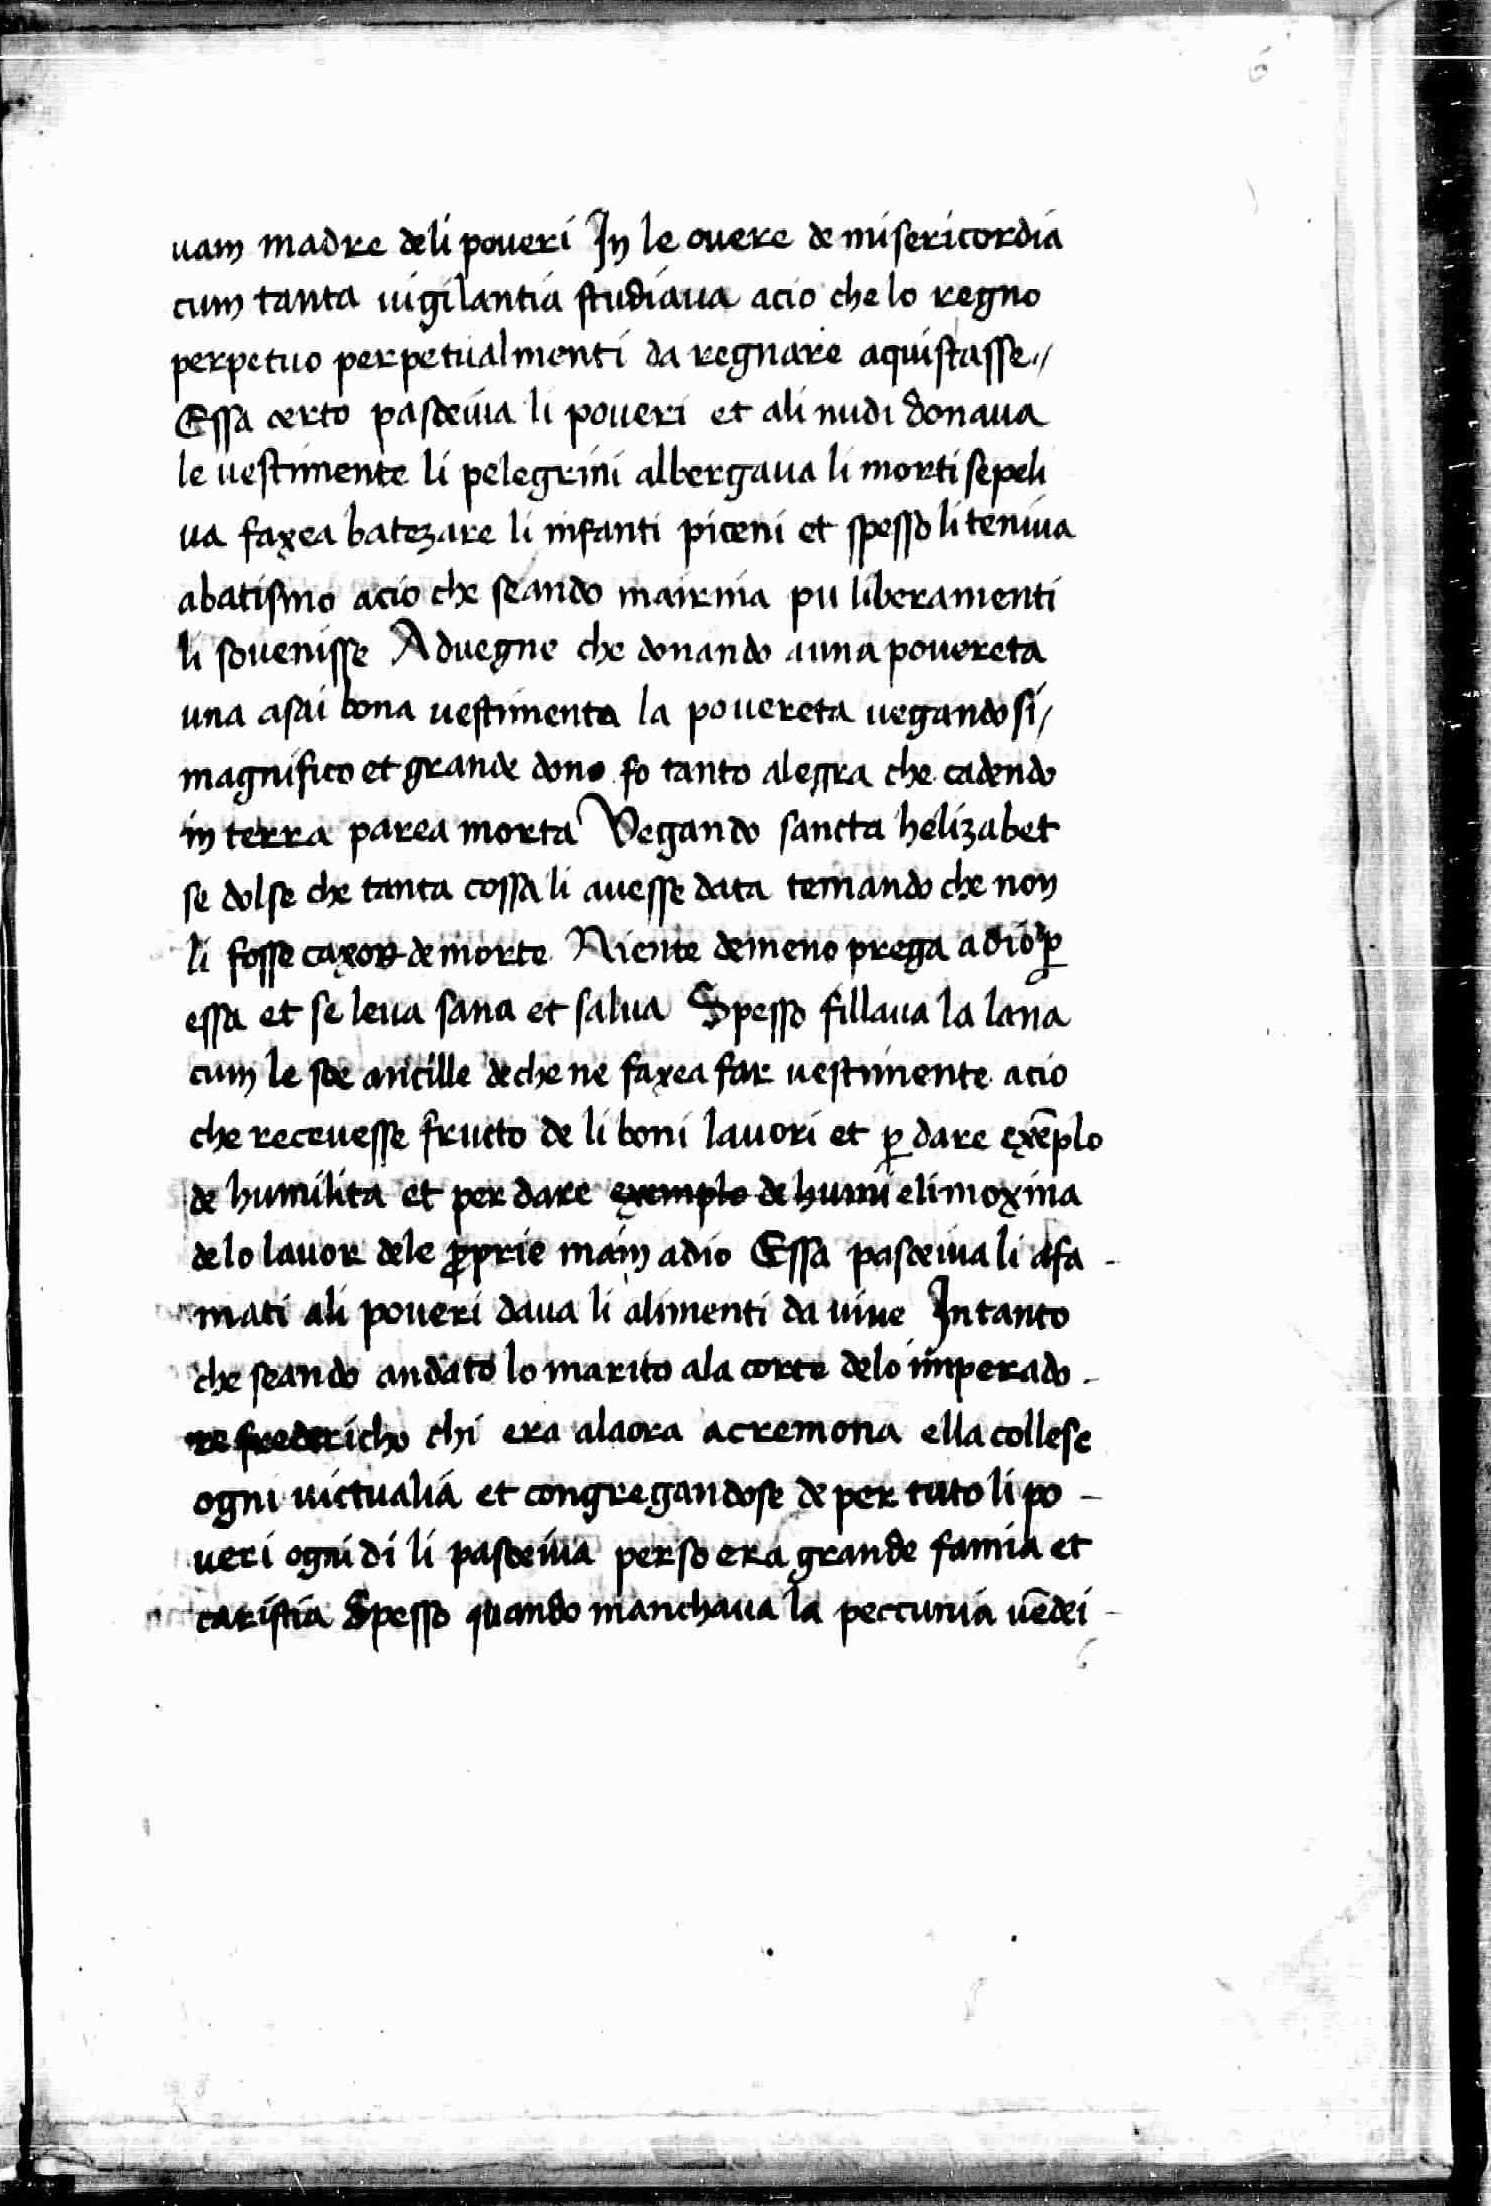 6
vam madre de li poveri In le overe de misericordia
cum tanta vigilantia studiava acio che lo regno
perpetuo perpetualmenti da regnare aquistasse //
Essa certo pasceiva li poveri et ali nudi donava
le vestimente li pelegrini albergava li morti sepeli
va faxea batezare li infanti piceni et spesso li teniva
abatismo acio che seando mairina piu liberamenti
li sovenisse Advegne che donando a una povereta
una asai bona vestimenta la povereta vegando si /
magnifico et grande dono fo tanto alegra che cadendo
in terra parea morta Vegando sancta helizabet
se dolse che tanta cossa li avesse data temando che non
li fosse caxon de morte Niente demeno prega a dio p
essa et se leva sana et salva Spesso fillava la lana
cum le soe ancille de che ne faxea far vestimente acio
che recevesse fructo de li boni lavori et p dare exēplo
de humilita et per dare exemplo de humi elimoxina
de lo lavor de le proprie main a dio Essa pasceiva li afa -
mati ali poveri dava li alimenti da vive In tanto
che seando andato lo marito ala corte delo imperado -
re fredericho chi era alaora a cremona ella collese
ogni victualia et congregandose de per tuto li po -
veri ogni di li pasceiva perso era grande famia et
caristia Spesso quando manchava la peccunia vēdei -